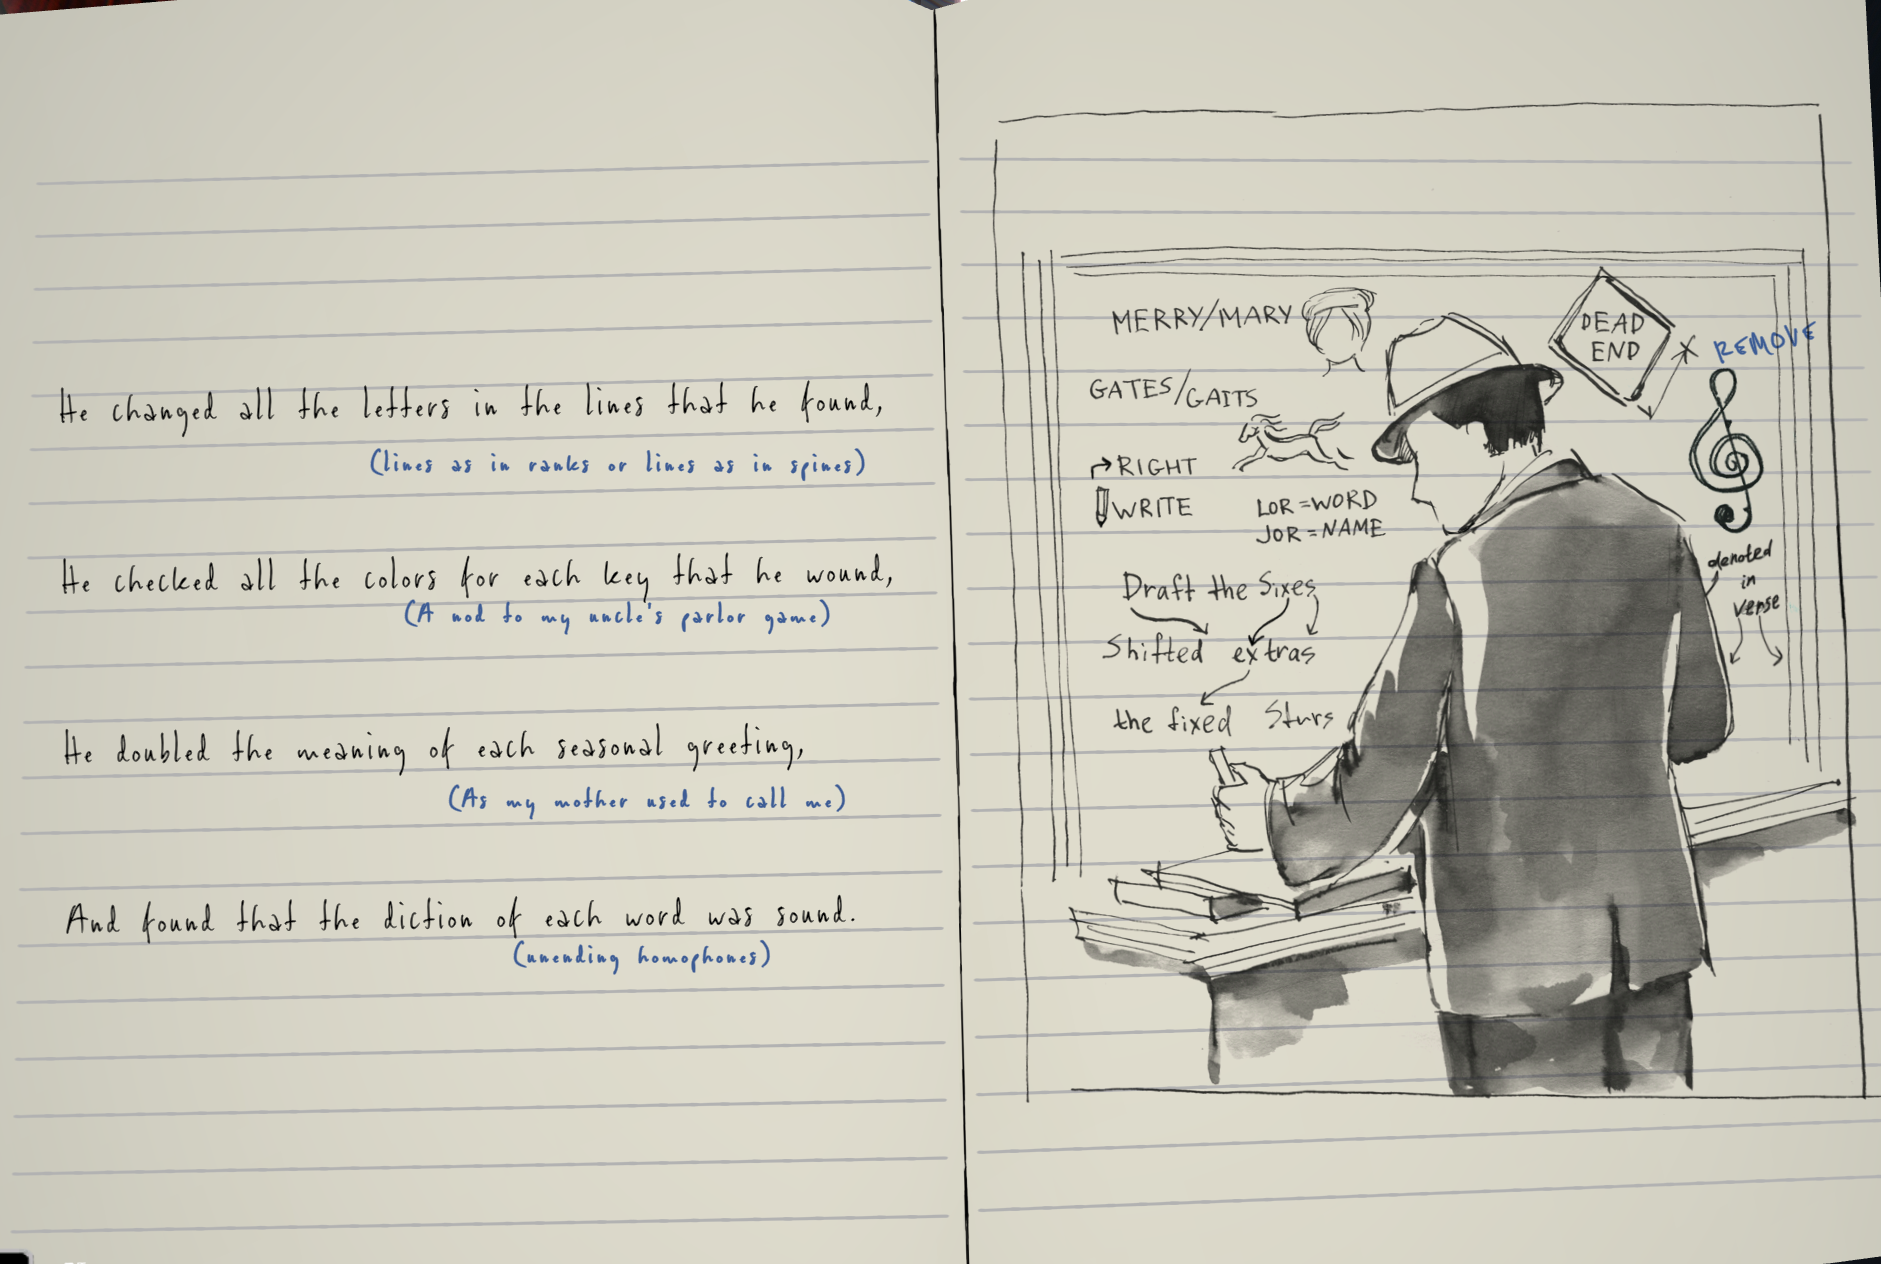 He changed all the letters in the lines that he found,
(lines as in ranks or lines as in spines)
He checked all the colors for each key that he wound,
(A nod to my uncle's parlor game)
He doubled the meaning of each seasonal greeting,
(As my mother used to call me)
And found that the diction of each word was sound.
(unending homophones)
MERRY/MARY
GATES/GAITS
RIGHT
WRITE
LOR = WORD
JOR = NAME
Draft the Sixes
Shifted extras
the fixed Stars
DEAD
END
REMOVE
denoted
in
verse